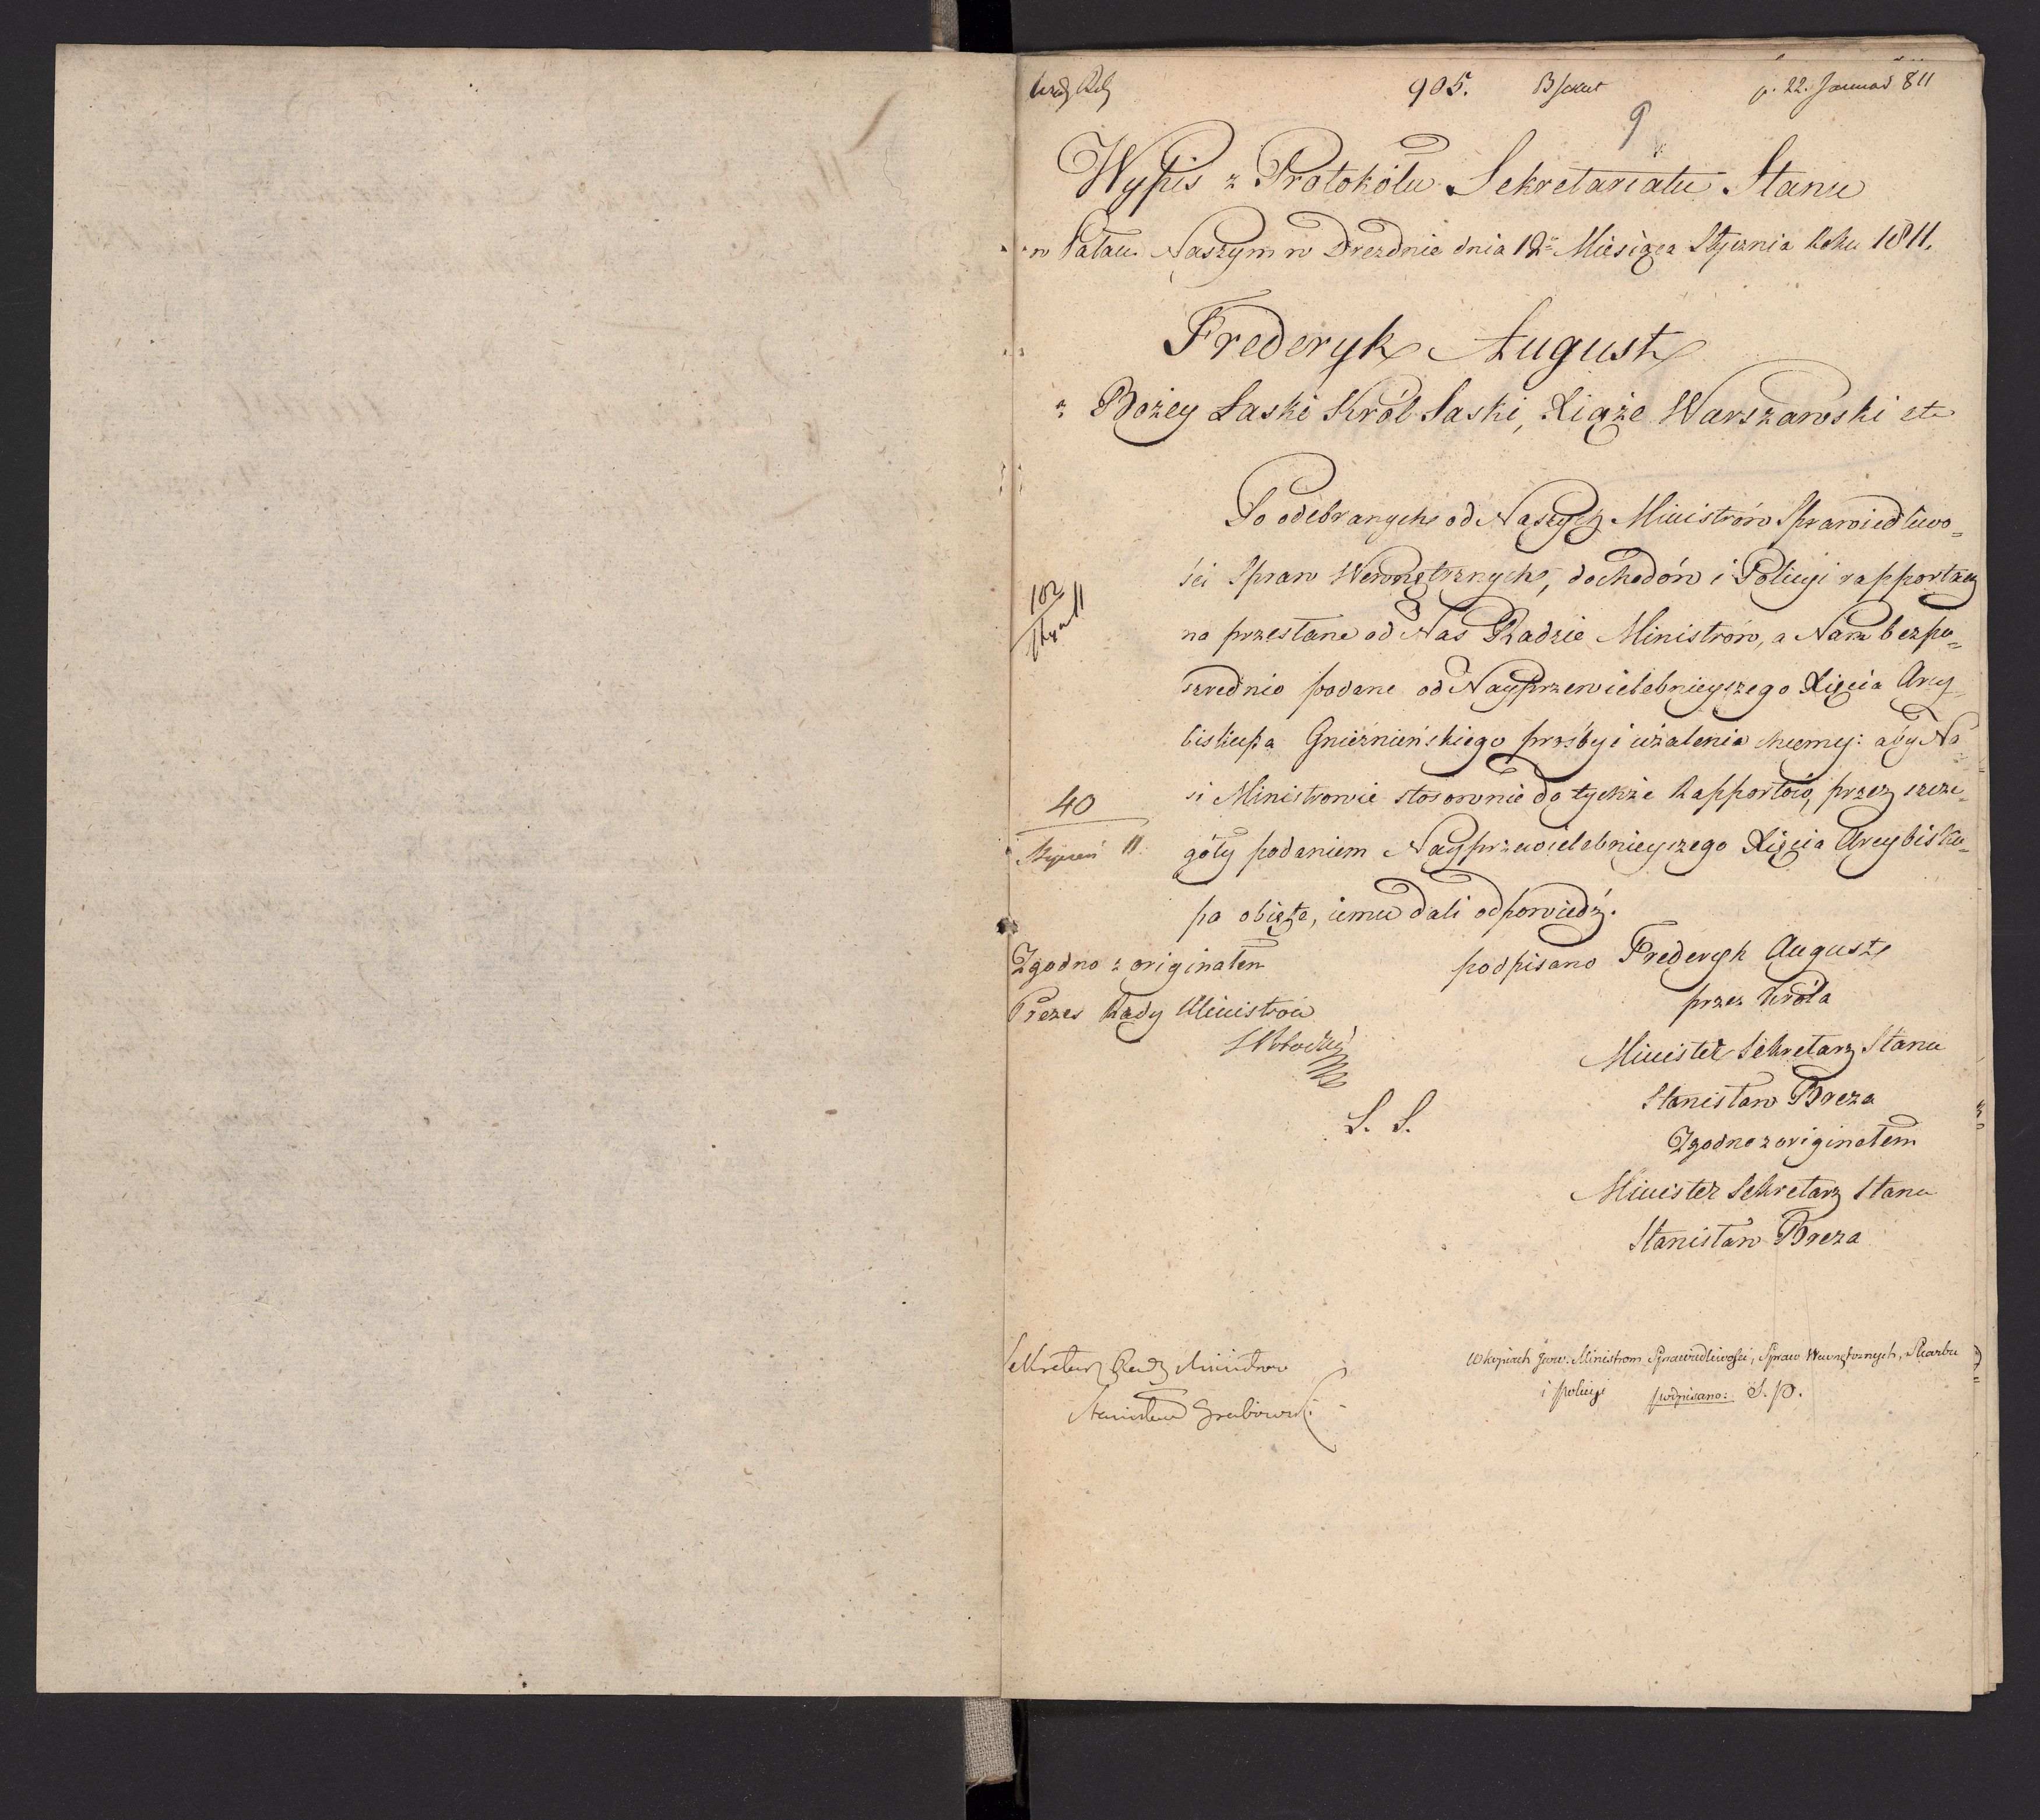 905.
p. 22. Januar 811
9
Wypis z Protokółu Sekretariatu Stanu
w Pałacu Naszym w Dreznie dnia 12 Miesiąca Stycznia Roku 1811.
Frederyk August
z Bożey Łaski Król Saski, Xiąże Warszawski etc
Po odebranych od Naszych Ministrów Sprawiedliwo=
ści Spraw Wewnętrznych, dochodów i Policyi rapportach
na przesłane od Nas Radzie Ministrów, a Nam bezpo=
szrednio podane od Nayprzewielebnieyszego Xięcia Arcy
biskupa Gnieźnieńskiego prośby i użalenia chcemy: aby Na=
si Ministrowie stosownie do tychże Rapportów, przez szcze=
góły podaniem Nayprzewielebnieyszego Xięcia Arcybisku=
pa obięte, iemu dali odpowiedź.
102
40
Styczeń 11.
Zgodno z originałem
Prezes Rady Ministrów
podpisano Frederyk August
przez Króla
Minister Sekretarz Stanu
Stanisław Breza
L. S.
Zgodno z originałem
Minister Sekretarz Stanu
Stanisław Breza
Sekretarz Rady Ministrów
Stanisław Grabowski
W kopiach JWW. Ministrom Sprawiedliwości, Spraw Wewnętrznych, Skarbu
i policyi podpisano: S. P.